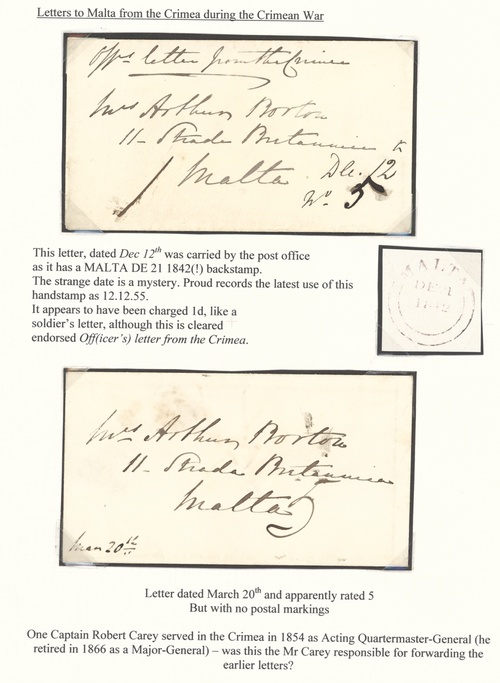 Letters to Malta from the Crimea during the Crimean War
Offrs letter from the Crimea
Mrs Arthur Borton
11- Strada Britannica
Malta. Dec. 12
No. 5
This letter, dated Dec 12th was carried by the post office
as it has a MALTA DE 21 1842(!) backstamp.
The strange date is a mystery. Proud records the latest use of this
handstamp as 12.12.55.
It appears to have been charged 1d, like a
soldier's letter, although this is cleared
endorsed Off(icer's) letter from the Crimea.
MALTA
DE 21
1842
Mrs Arthur Borton
11- Strada Britannica
Malta
Mar 20th
Letter dated March 20th and apparently rated 5
But with no postal markings
One Captain Robert Carey served in the Crimea in 1854 as Acting Quartermaster-General (he
retired in 1866 as a Major-General) – was this the Mr Carey responsible for forwarding the
earlier letters?